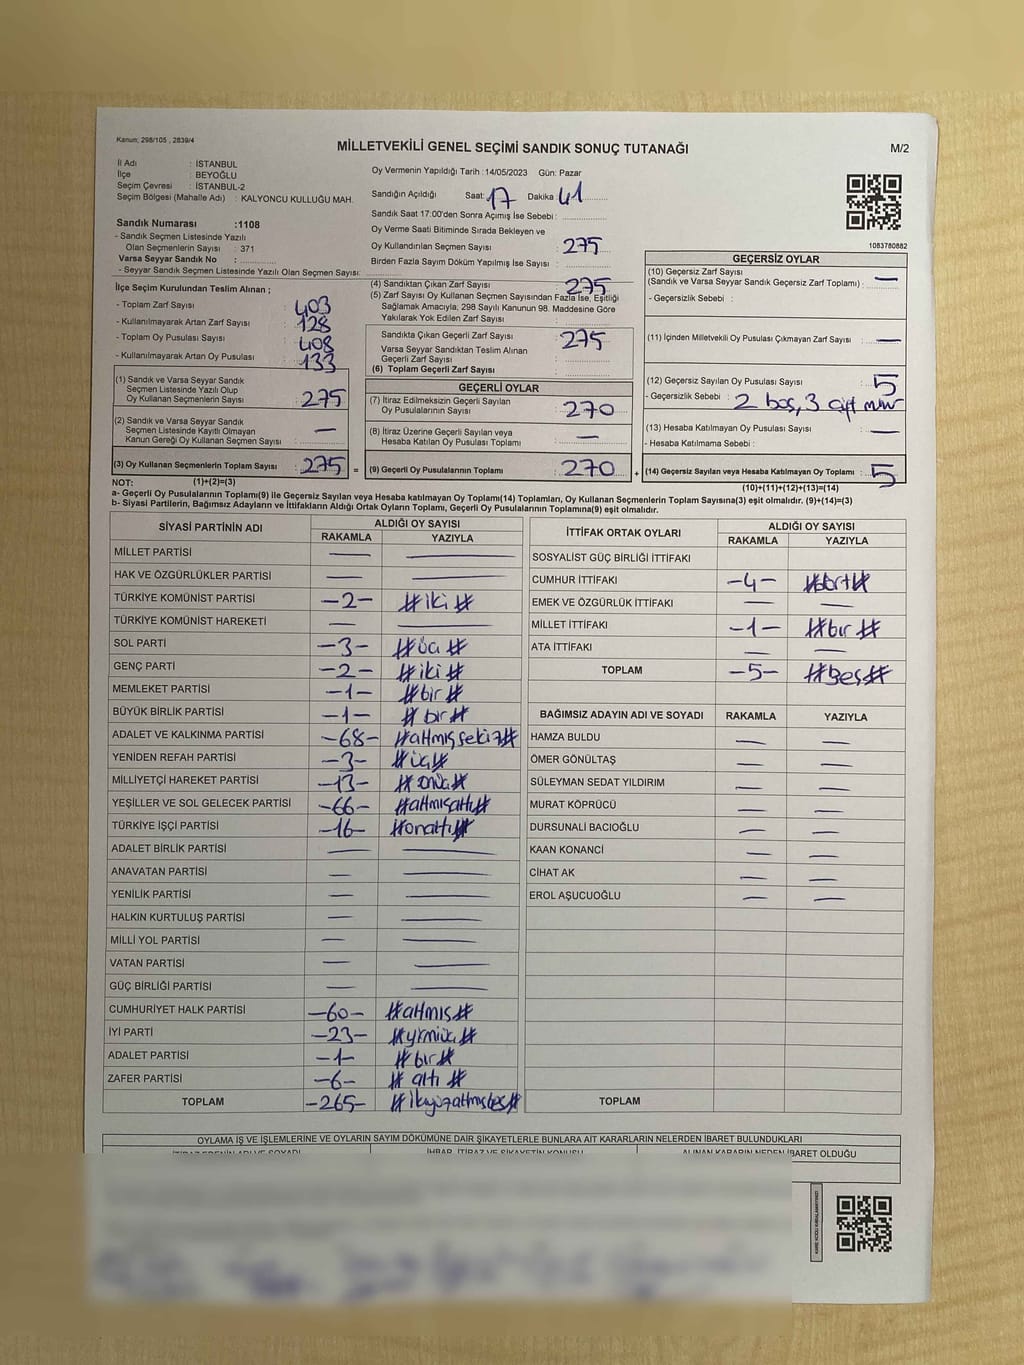 Kanun: 298/105 , 2839/4
MİLLETVEKİLİ GENEL SEÇİMİ SANDIK SONUÇ TUTANAĞI
M/2
İl Adı : İSTANBUL
İlçe : BEYOĞLU
Seçim Çevresi : İSTANBUL-2
Seçim Bölgesi (Mahalle Adı) : KALYONCU KULLUĞU MAH.
Sandık Numarası :1108
- Sandık Seçmen Listesinde Yazılı
Olan Seçmenlerin Sayısı : 371
Varsa Seyyar Sandık No :
- Seyyar Sandık Seçmen Listesinde Yazılı Olan Seçmen Sayısı:
Oy Vermenin Yapıldığı Tarih : 14/05/2023 Gün: Pazar
Sandığın Açıldığı Saat: 17 Dakika: 41
Sandık Saat 17:00'den Sonra Açımış İse Sebebi :
Oy Verme Saati Bitiminde Sırada Bekleyen ve
Oy Kullandırılan Seçmen Sayısı : 275
Birden Fazla Sayım Döküm Yapılmış İse Sayısı :
1083780882
İlçe Seçim Kurulundan Teslim Alınan ;
- Toplam Zarf Sayısı : 403
- Kullanılmayarak Artan Zarf Sayısı : 128
- Toplam Oy Pusulası Sayısı : 408
- Kullanılmayarak Artan Oy Pusulası : 133
(1) Sandık ve Varsa Seyyar Sandık
Seçmen Listesinde Yazılı Olup
Oy Kullanan Seçmenlerin Sayısı : 275
(2) Sandık ve Varsa Seyyar Sandık
Seçmen Listesinde Kayıtlı Olmayan
Kanun Gereği Oy Kullanan Seçmen Sayısı : —
(3) Oy Kullanan Seçmenlerin Toplam Sayısı : 275 =
(1)+(2)=(3)
(4) Sandıktan Çıkan Zarf Sayısı : 275
(5) Zarf Sayısı Oy Kullanan Seçmen Sayısından Fazla İse, Eşitliği
Sağlamak Amacıyla, 298 Sayılı Kanunun 98. Maddesine Göre
Yakılarak Yok Edilen Zarf Sayısı :
Sandıkta Çıkan Geçerli Zarf Sayısı : 275
Varsa Seyyar Sandıktan Teslim Alınan
Geçerli Zarf Sayısı :
(6) Toplam Geçerli Zarf Sayısı :
GEÇERLİ OYLAR
(7) İtiraz Edilmeksizin Geçerli Sayılan
Oy Pusulalarının Sayısı : 270
(8) İtiraz Üzerine Geçerli Sayılan veya
Hesaba Katılan Oy Pusulası Toplamı : —
(9) Geçerli Oy Pusulalarının Toplamı : 270 +
GEÇERSİZ OYLAR
(10) Geçersiz Zarf Sayısı
(Sandık ve Varsa Seyyar Sandık Geçersiz Zarf Toplamı) : —
- Geçersizlik Sebebi :
(11) İçinden Milletvekili Oy Pusulası Çıkmayan Zarf Sayısı : —
(12) Geçersiz Sayılan Oy Pusulası Sayısı : 5
- Geçersizlik Sebebi : 2 boş, 3 çift
(13) Hesaba Katılmayan Oy Pusulası Sayısı : —
- Hesaba Katılmama Sebebi :
(14) Geçersiz Sayılan veya Hesaba Katılmayan Oy Toplamı : 5
(10)+(11)+(12)+(13)=(14)
NOT:
a- Geçerli Oy Pusulalarının Toplamı(9) ile Geçersiz Sayılan veya Hesaba katılmayan Oy Toplamı(14) Toplamları, Oy Kullanan Seçmenlerin Toplam Sayısına(3) eşit olmalıdır. (9)+(14)=(3)
b- Siyasi Partilerin, Bağımsız Adayların ve İttifakların Aldığı Ortak Oyların Toplamı, Geçerli Oy Pusulalarının Toplamına(9) eşit olmalıdır.
SİYASİ PARTİNİN ADI ALDIĞI OY SAYISI
RAKAMLA YAZIYLA
MİLLET PARTİSİ — —
HAK VE ÖZGÜRLÜKLER PARTİSİ — —
TÜRKİYE KOMÜNİST PARTİSİ -2- #iki#
TÜRKİYE KOMÜNİST HAREKETİ — —
SOL PARTİ -3- #üç#
GENÇ PARTİ -2- #iki#
MEMLEKET PARTİSİ -1- #bir#
BÜYÜK BİRLİK PARTİSİ -1- #bir#
ADALET VE KALKINMA PARTİSİ -68- #altmışsekiz#
YENİDEN REFAH PARTİSİ -3- #üç#
MİLLİYETÇİ HAREKET PARTİSİ -13- #onüç#
YEŞİLLER VE SOL GELECEK PARTİSİ -66- #altmışaltı#
TÜRKİYE İŞÇİ PARTİSİ -16- #onaltı#
ADALET BİRLİK PARTİSİ — —
ANAVATAN PARTİSİ — —
YENİLİK PARTİSİ — —
HALKIN KURTULUŞ PARTİSİ — —
MİLLİ YOL PARTİSİ — —
VATAN PARTİSİ — —
GÜÇ BİRLİĞİ PARTİSİ — —
CUMHURİYET HALK PARTİSİ -60- #altmış#
İYİ PARTİ -23- #yirmiüç#
ADALET PARTİSİ -1- #bir#
ZAFER PARTİSİ -6- #altı#
TOPLAM -265- #ikiyüzaltmışbeş#
İTTİFAK ORTAK OYLARI ALDIĞI OY SAYISI
RAKAMLA YAZIYLA
SOSYALİST GÜÇ BİRLİĞİ İTTİFAKI
CUMHUR İTTİFAKI -4- #dört#
EMEK VE ÖZGÜRLÜK İTTİFAKI — —
MİLLET İTTİFAKI -1- #bir#
ATA İTTİFAKI — —
TOPLAM -5- #Beş#
BAĞIMSIZ ADAYIN ADI VE SOYADI RAKAMLA YAZIYLA
HAMZA BULDU — —
ÖMER GÖNÜLTAŞ — —
SÜLEYMAN SEDAT YILDIRIM — —
MURAT KÖPRÜCÜ — —
DURSUNALİ BACIOĞLU — —
KAAN KONANCİ — —
CİHAT AK — —
EROL AŞUCUOĞLU — —
TOPLAM
OYLAMA İŞ VE İŞLEMLERİNE VE OYLARIN SAYIM DÖKÜMÜNE DAİR ŞİKAYETLERLE BUNLARA AİT KARARLARIN NELERDEN İBARET BULUNDUKLARI
İTİRAZ EDENİN ADI VE SOYADI İHBAR, İTİRAZ VE ŞİKAYETİN KONUSU ALINAN KARARIN NEDEN İBARET OLDUĞU